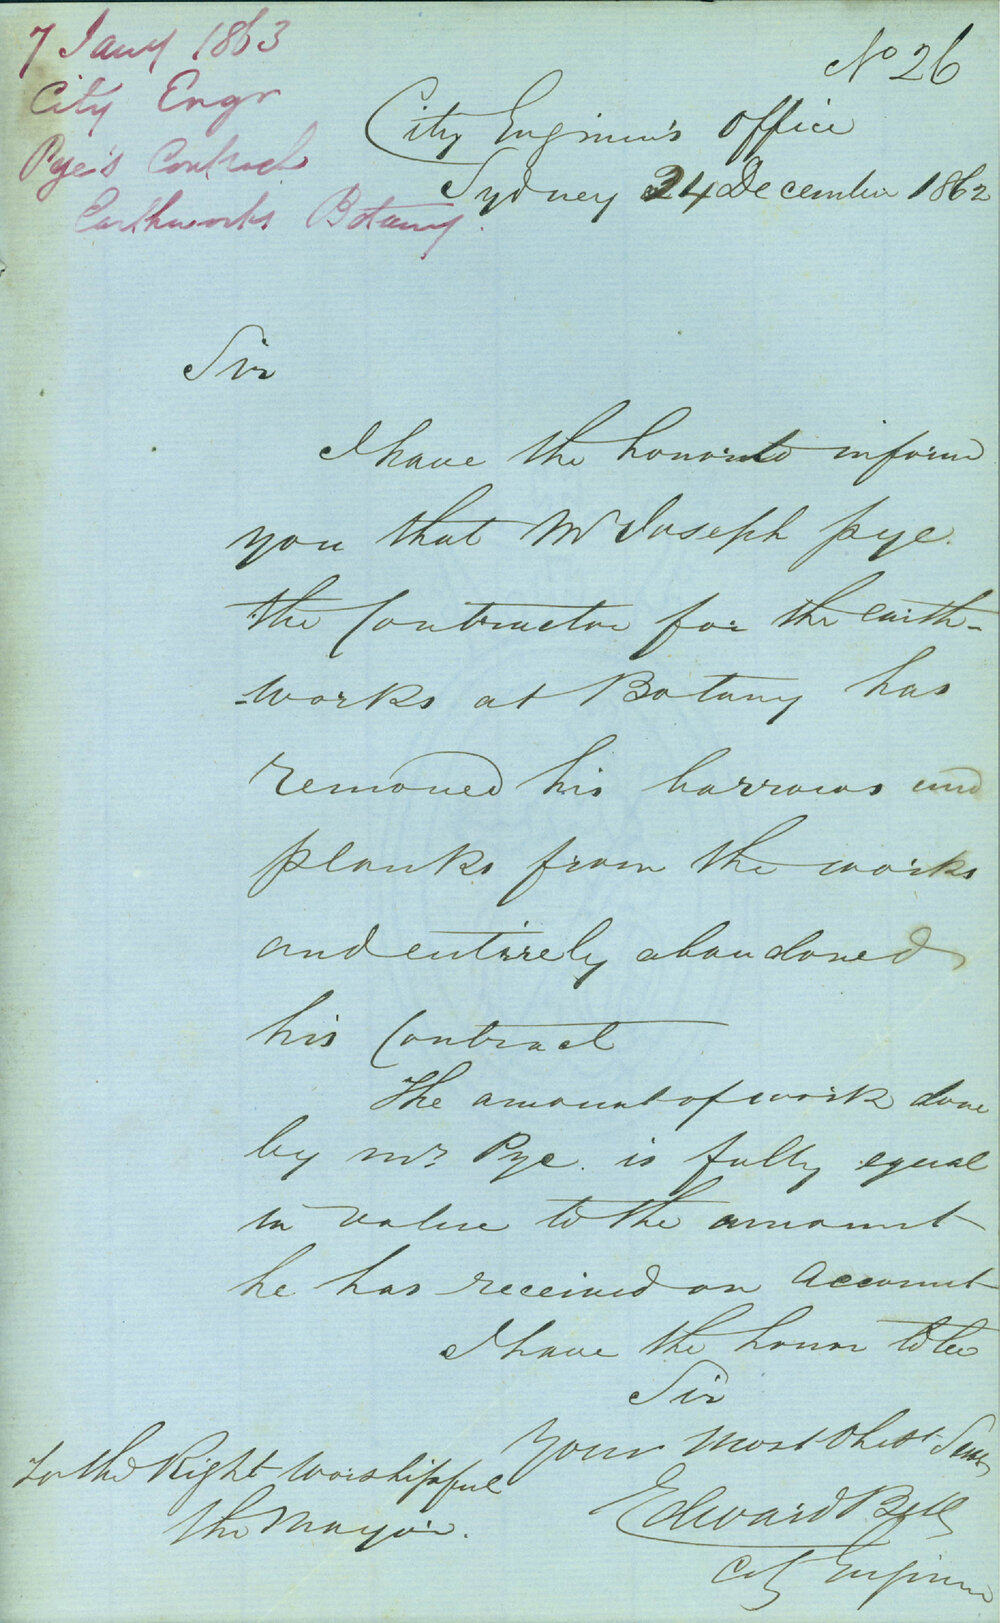 7 Jany 1863
City Engr
Pye's Contract
Earthworks Botany.
No 26
City Engineer's Office
Sydney 24 December 1862
Sir
I have the honor to inform
you that Mr Joseph Pye.
the Contractor for the earth-
-works at Botany has
removed his barrows and
planks from the works
and entirely abandoned
his Contract
The amount of work done
by Mr Pye. is fully equal
in value to the amount
he has received on Account
I have the honor to be
Sir
Your most Obedt Servt
Edward Bell
City Engineer
To the Right Worshipful
the Mayor.